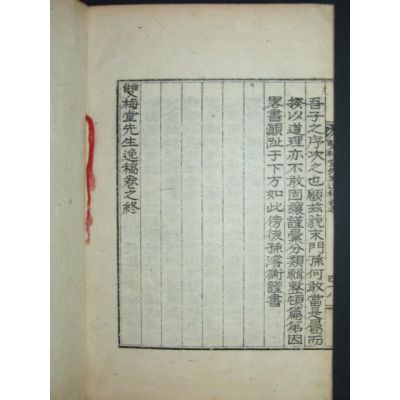 吾子之序次之也顧玆藐末門孫何敢當是屬而
揆以道理亦不敢固讓謹彙分類輯整頓篇第因
畧書顚趾于下方如此傍後孫衡謹書
雙梅堂先生逸稿卷之終